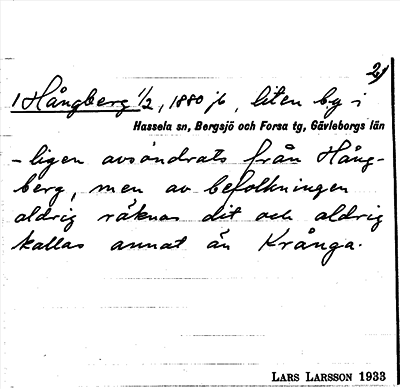 2)
1 Hångberg 1/2, 1880 jb, liten by i
Hassela sn, Bergsjö och Forsa tg, Gävleborgs län
-ligen avsöndrats från Hång-
berg, men av befolkningen
aldrig räknas dit och aldrig
kallas annat än Krånga.
LARS LARSSON 1933